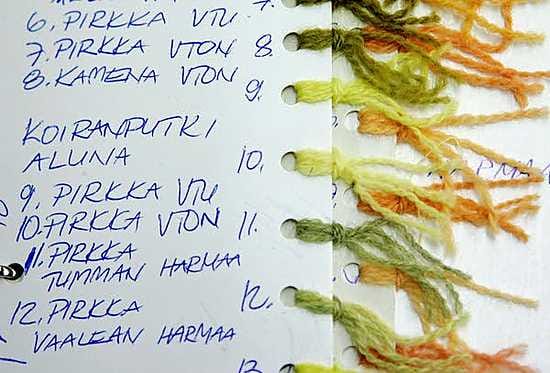 6. PIRKKA VTU
7. PIRKKA VTON
8. KAMENA VTON
KOIRANPUTKI
ALUNA
9. PIRKKA VTU
10. PIRKKA VTON
11. PIRKKA
TUMMAN HARMAA
12. PIRKKA
VAALEAN HARMAA
7.
8.
9.
10.
11.
12.
13.